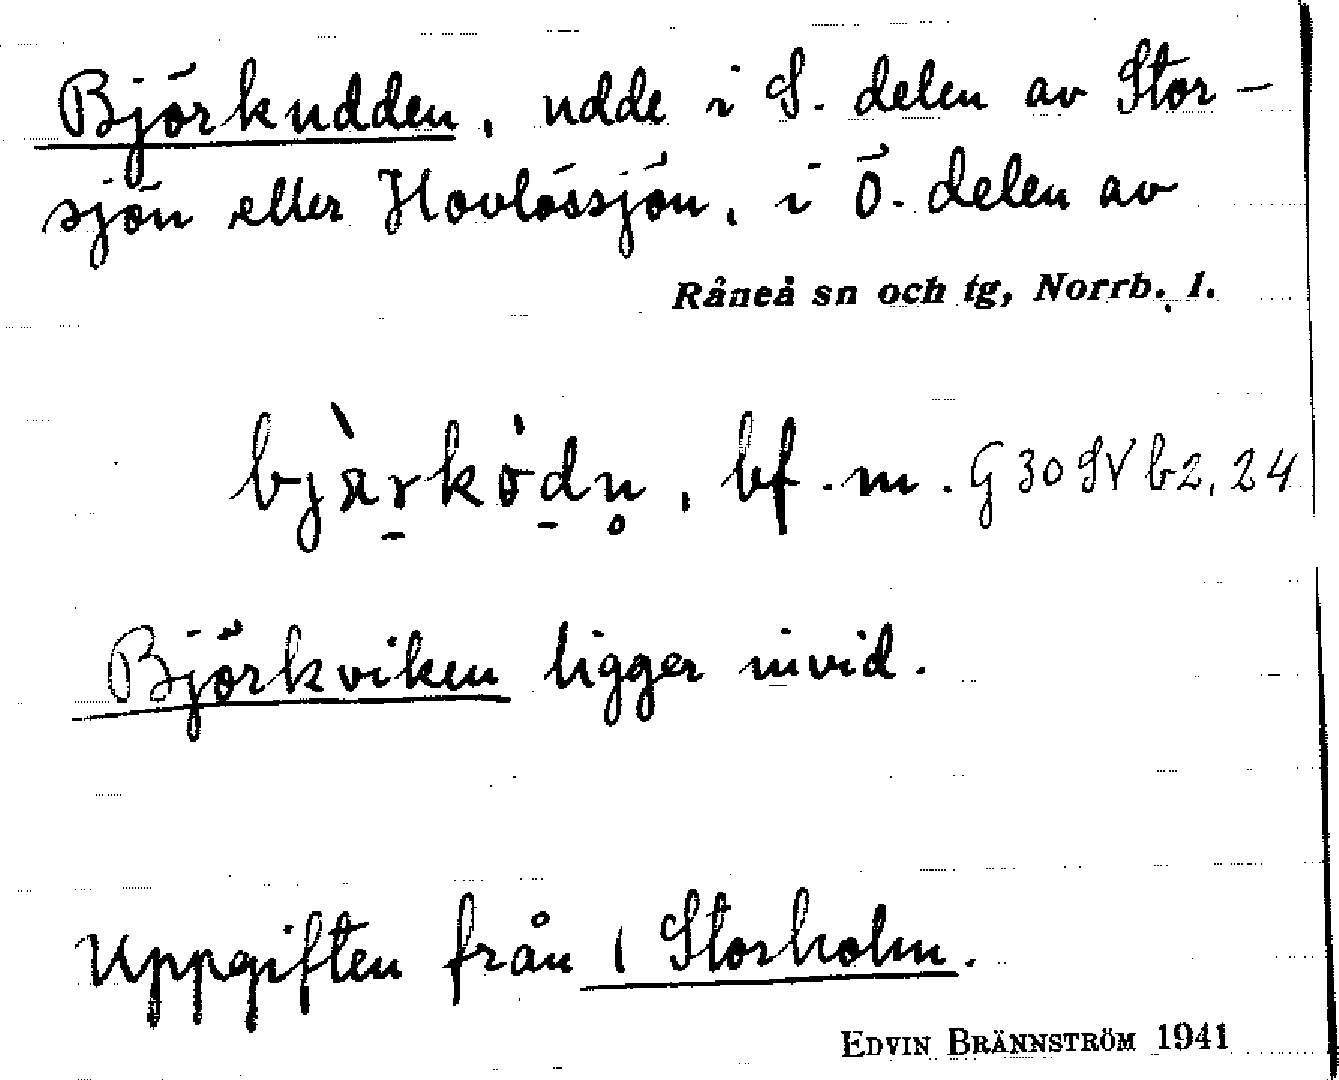 Björkudden, udde i S. delen av Stor-
sjön eller Hovlössjön, i Ö. delen av
Råneå sn och tg, Norrb. l.
bf. m. G 30 SV b2, 24
Björkviken ligger invid.
Uppgiften från 1 Storholm.
EDVIN BRÄNNSTRÖM 1941